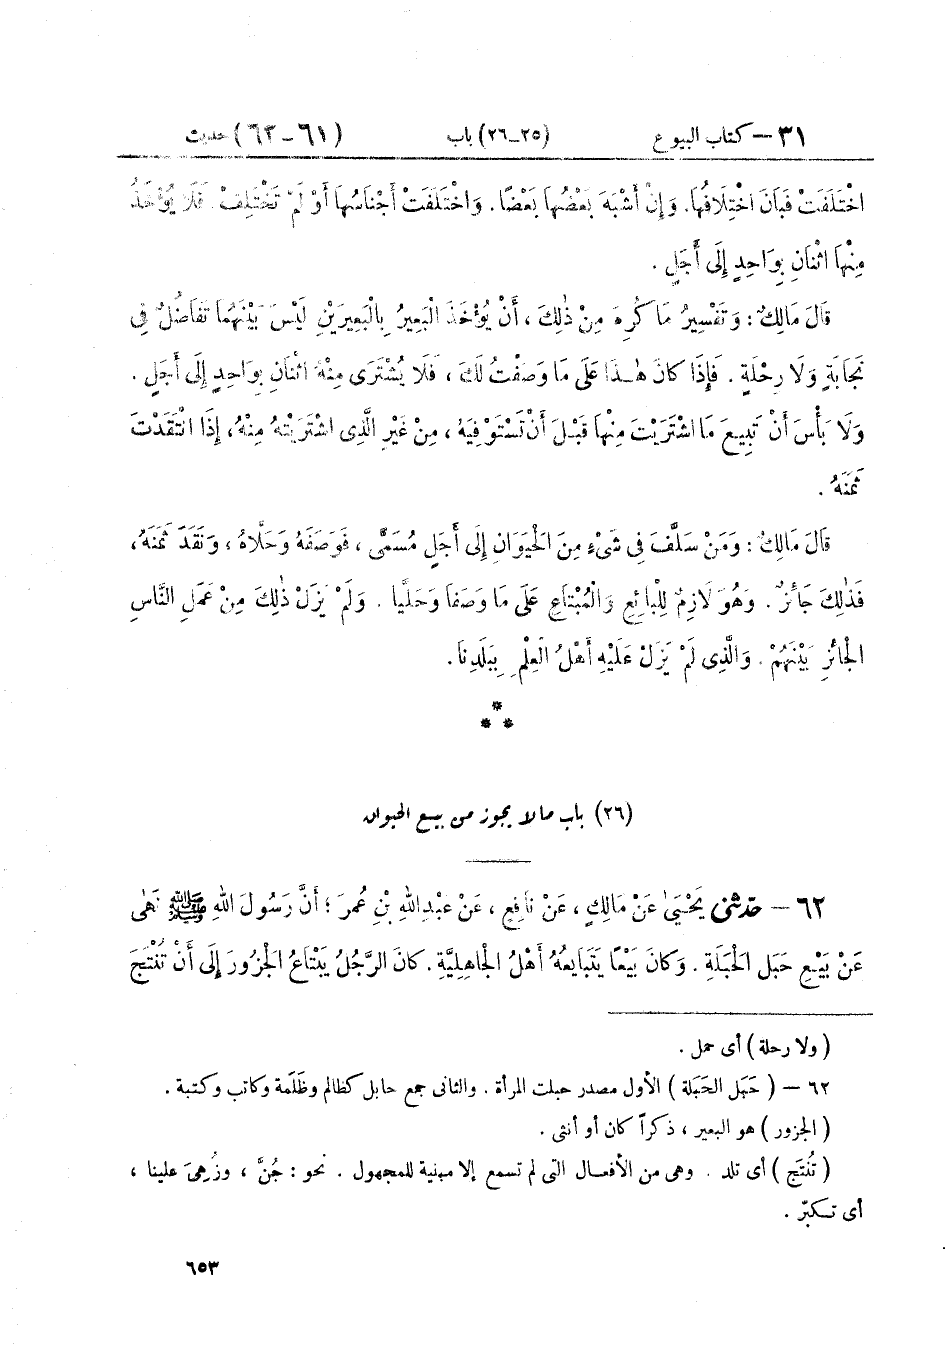 ٣١ – كتاب البيوع (٢٥–٢٦) باب (٦١–٦٢) حديث
اخْتَلَفَتْ فَبَانَ اخْتِلَافُهَا. وَإِنْ أَشْبَهَ بَعْضُهَا بَعْضًا. وَاخْتَلَفَتْ أَجْنَاسُهَا أَوْ لَمْ تَخْتَلِفْ. فَلَا يُؤْخَذُ
مِنْهَا اثْنَانِ بِوَاحِدٍ إِلَى أَجَلٍ .
قَالَ مَالِكٌ : وَتَفْسِيرُ مَا كُرِهَ مِنْ ذَٰلِكَ ، أَنْ يُؤْخَذَ الْبَعِيرُ بِالْبَعِيرَيْنِ لَيْسَ بَيْنَهُمَا تَفَاضُلٌ فِى
نَجَابَةٍ وَلَا رِحْلَةٍ . فَإِذَا كَانَ هَٰذَا عَلَى مَا وَصَفْتُ لَكَ ، فَلَا يُشْتَرَى مِنْهُ اثْنَانِ بِوَاحِدٍ إِلَى أَجَلٍ .
وَلَا بَأْسَ أَنْ تَبِيعَ مَا اشْتَرَيْتَ مِنْهَا قَبْلَ أَنْ تَسْتَوْفِيَهُ ، مِنْ غَيْرِ الَّذِى اشْتَرَيْتَهُ مِنْهُ، إِذَا انْتَقَدْتَ
ثَمَنَهُ .
قَالَ مَالِكٌ : وَمَنْ سَلَّفَ فِى شَىْءٍ مِنَ الْحَيَوَانِ إِلَى أَجَلٍ مُسَمًّى ، فَوَصَفَهُ وَحَلَّاهُ ، وَنَقَدَ ثَمَنَهُ،
فَذَٰلِكَ جَائِزٌ . وَهُوَ لَازِمٌ لِلْبَائِعِ وَالْمُبْتَاعِ عَلَى مَا وَصَفَا وَحَلَّيَا . وَلَمْ يَزَلْ ذَٰلِكَ مِنْ عَمَلِ النَّاسِ
الْجَائِزِ بَيْنَهُمْ . وَالَّذِى لَمْ يَزَلْ عَلَيْهِ أَهْلُ الْعِلْمِ بِبَلَدِنَا.
*
* *
(٢٦) باب ما لا يجوز من بيع الحيوان
٦٢ – حَدَّثَنِى يَحْيَىٰ عَنْ مَالِكٍ ، عَنْ نَافِعٍ ، عَنْ عَبْدِ اللهِ بْنِ عُمَرَ ؛ أَنَّ رَسُولَ اللهِ ﷺ نَهَى
عَنْ بَيْعِ حَبَلِ الْحَبَلَةِ . وَكَانَ بَيْعًا يَتَبَايَعُهُ أَهْلُ الْجَاهِلِيَّةِ. كَانَ الرَّجُلُ يَبْتَاعُ الْجَزُورَ إِلَى أَنْ تُنْتَجَ
( ولا رحلة ) أى حمل .
٦٢ – ( حَبَل الحَبَلة ) الأول مصدر حبلت المرأة . والثانى جمع حابل كظالم وظَلَمة وكاتب وكتبة .
( الجزور ) هو البعير ، ذكراً كان أو أنثى .
( تُنْتَج ) أى تلد . وهى من الأفعال التى لم تسمع إلا مبنية للمجهول . نحو : جُنَّ ، وزُهِىَ علينا ،
أى تكبّر .
٦٥٣